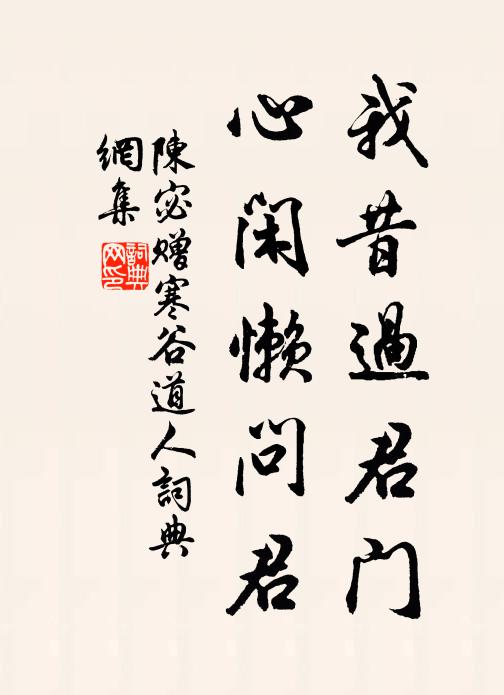 我昔過君门
心闲懒問君
陳宓赠寒谷道人詞典
網集
詞典
网印